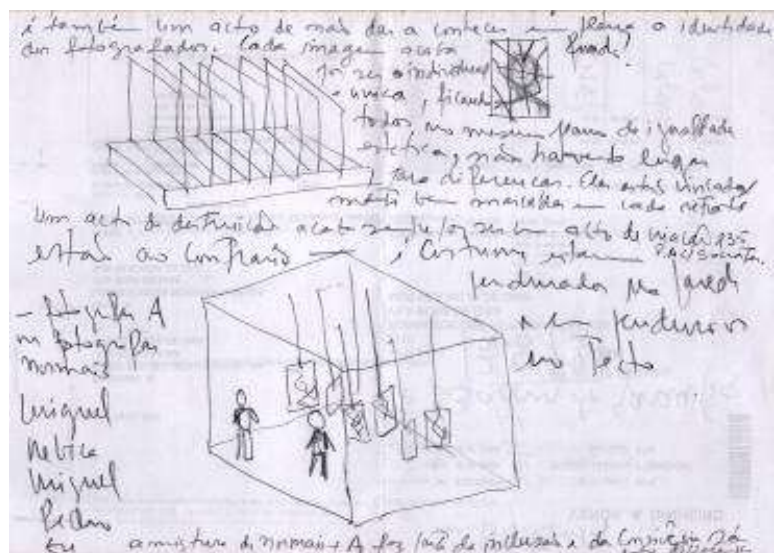 é também um acto de não dar a conhecer em pleno a identidade
dos fotografados. Cada imagem acaba
por ser individual
e única, ficando
todos no mesmo plano de igualdade
estética, não havendo lugar
para diferenças. Elas estão
bem marcadas em cada retrato
Um acto de destruição acaba sempre por ser um acto de criação
estão ao contrário — e costumam estar
penduradas na parede
e eu penduro-os
no tecto
— fotografar A
normais
Miguel
Miguel
Pedro
Eu
a mistura de normais + A faz parte da inclusão e da